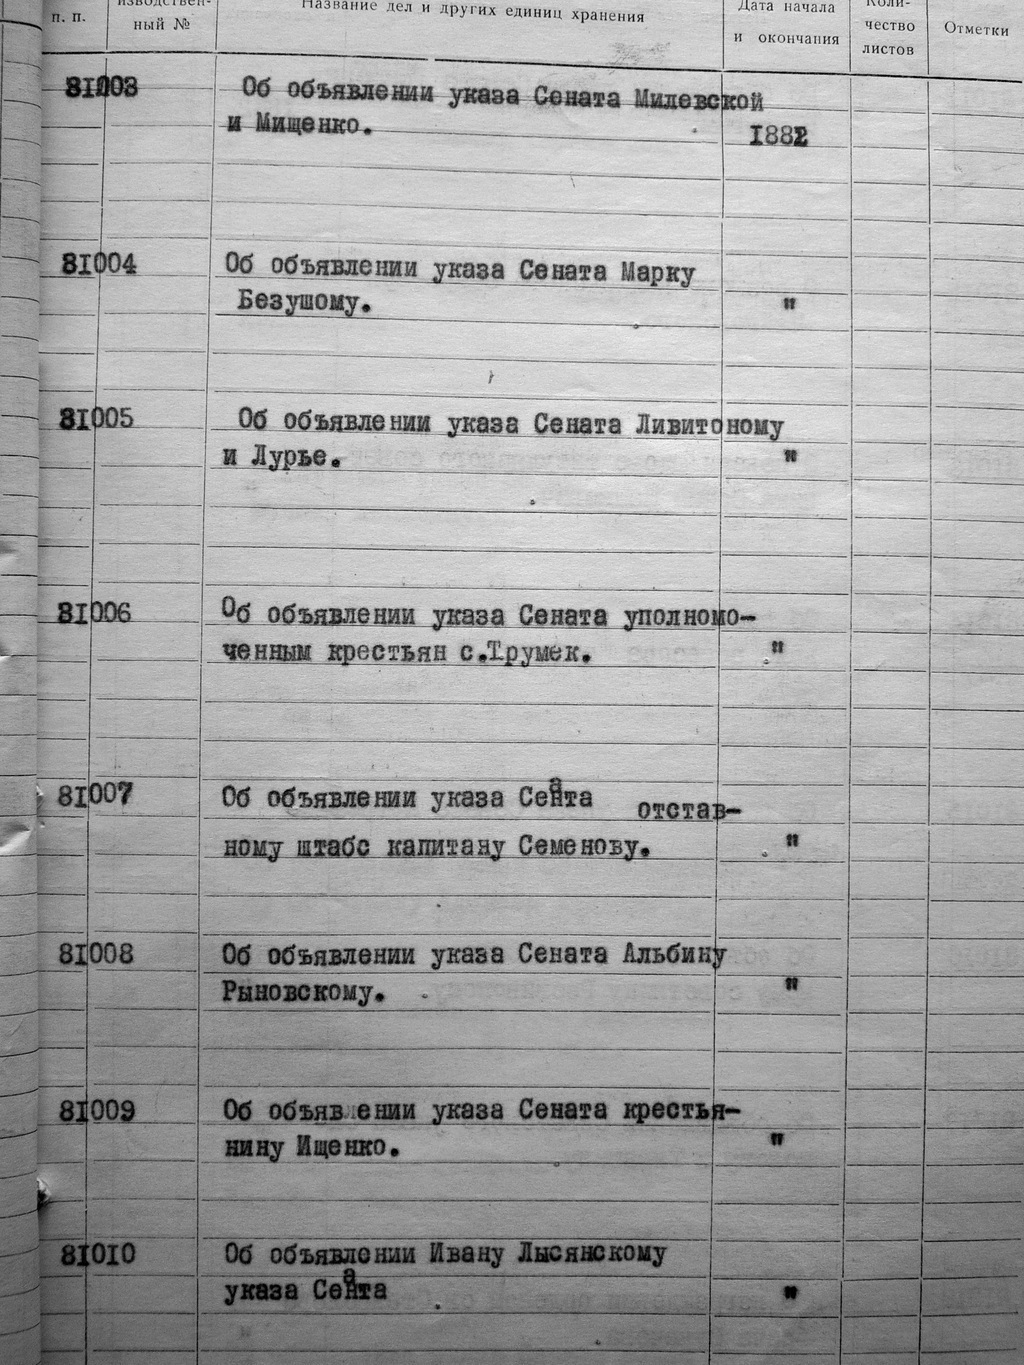 п. п.
изводствен-
ный №
Название дел и других единиц хранения
Дата начала
и окончания
Коли-
чество
листов
Отметки
81003
Об объявлении указа Сената Милевской
и Мищенко.
1882
81004
Об объявлении указа Сената Марку
Безушому.
"
81005
Об объявлении указа Сената Ливитоному
и Лурье.
"
81006
Об объявлении указа Сената уполномо-
ченным крестьян с.Трумек.
"
81007
Об объявлении указа Сената отстав-
ному штабс капитану Семенову.
"
81008
Об объявлении указа Сената Альбину
Рыновскому.
"
81009
Об объяв.ении указа Сената крестья-
нину Ищенко.
"
81010
Об объявлении Ивану Лысянскому
указа Сената
"